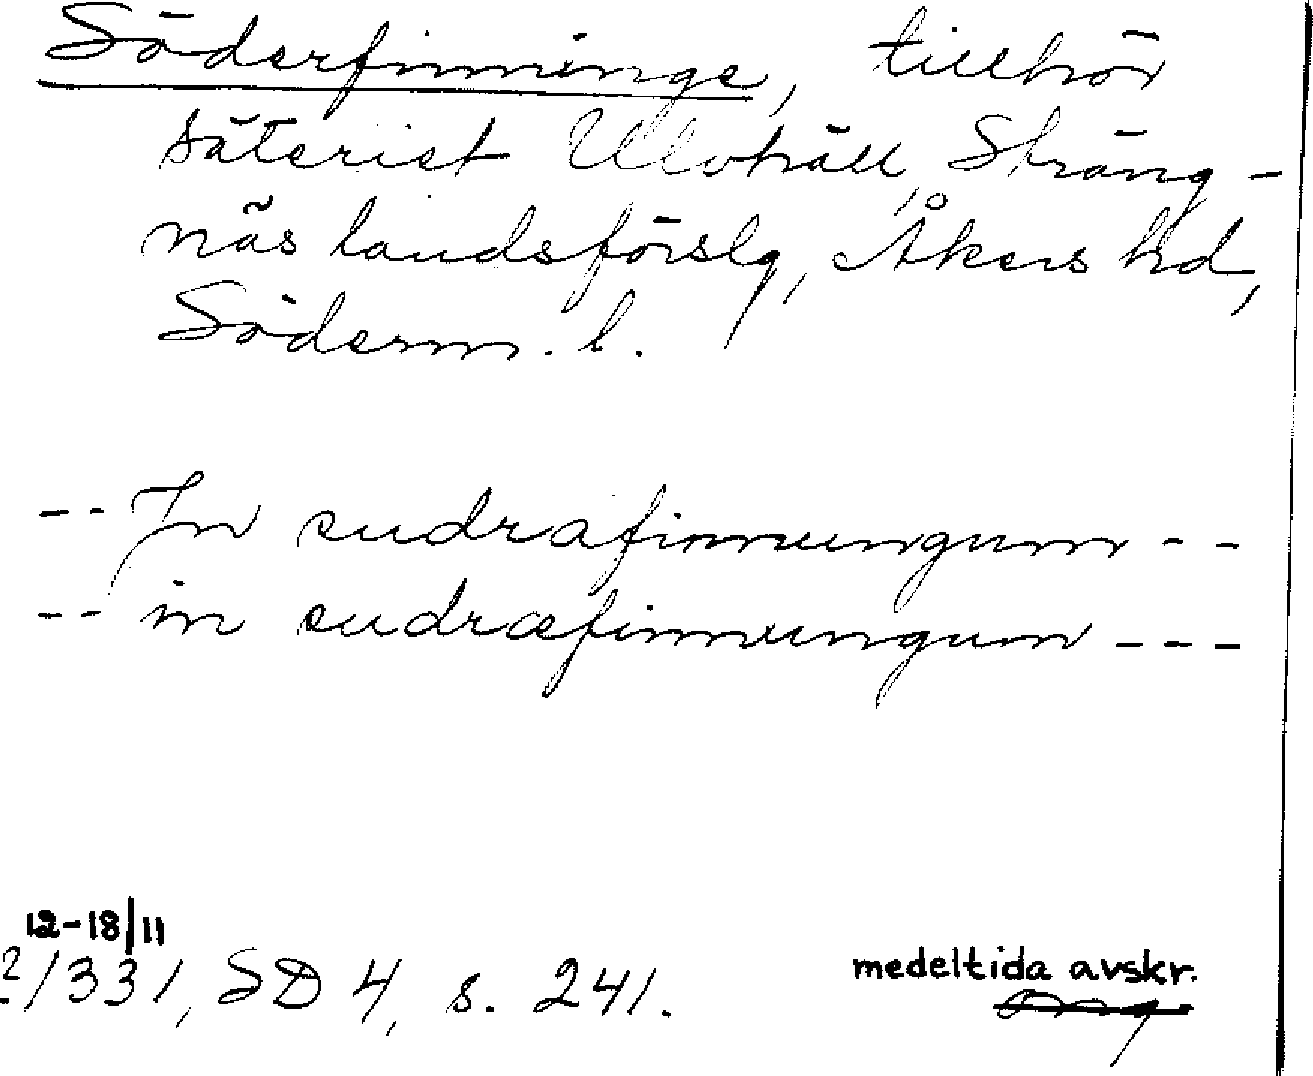 Söderfinninge, tillhör
säteriet Ulvhäll, Sträng-
näs landsförslg, Åkers hd,
Söderm. l.
-- In sudrafinnungum --
-- in sudræfinnungum ---
12-18/11
?/331, SD 4, s. 241.
medeltida avskr.